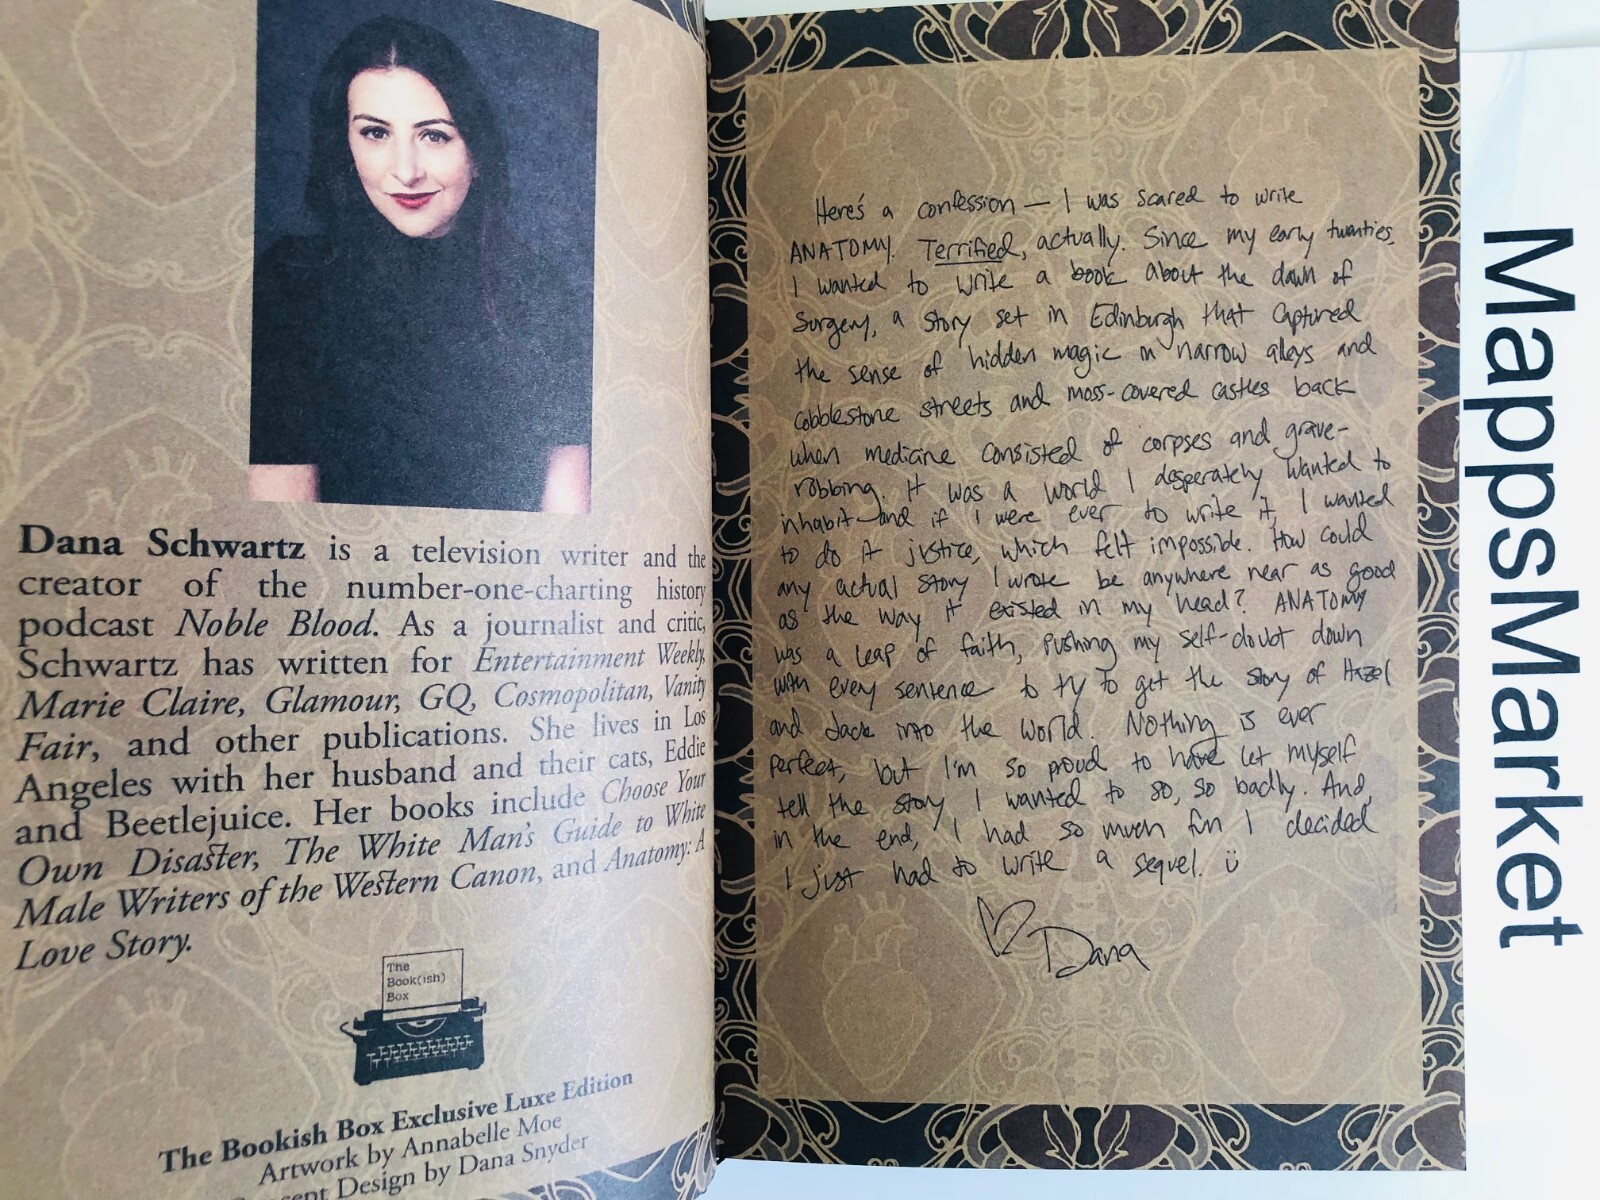 Dana Schwartz is a television writer and the
creator of the number-one-charting history
podcast Noble Blood. As a journalist and critic,
Schwartz has written for Entertainment Weekly,
Marie Claire, Glamour, GQ, Cosmopolitan, Vanity
Fair, and other publications. She lives in Los
Angeles with her husband and their cats, Eddie
and Beetlejuice. Her books include Choose Your
Own Disaster, The White Man's Guide to White
Male Writers of the Western Canon, and Anatomy: A
Love Story.
The
Book(ish)
Box
The Bookish Box Exclusive Luxe Edition
Artwork by Annabelle Moe
Design by Dana Snyder
Here's a confession — I was scared to write
ANATOMY. Terrified, actually. Since my early twenties,
I wanted to write a book about the dawn of
surgery, a story set in Edinburgh that captured
the sense of hidden magic in narrow alleys and
cobblestone streets and moss-covered castles back
when medicine consisted of corpses and grave-
robbing. It was a world I desperately wanted to
inhabit—and if I were ever to write it, I wanted
to do it justice, which felt impossible. How could
any actual story I wrote be anywhere near as good
as the way it existed in my head? ANATOMY
was a leap of faith, pushing my self-doubt down
with every sentence to try to get the story of Hazel
and Jack into the world. Nothing is ever
perfect, but I'm so proud to have let myself
tell the story I wanted to so, so badly. And,
in the end, I had so much fun I decided
I just had to write a sequel. ü
♡ Dana
MappsMarket